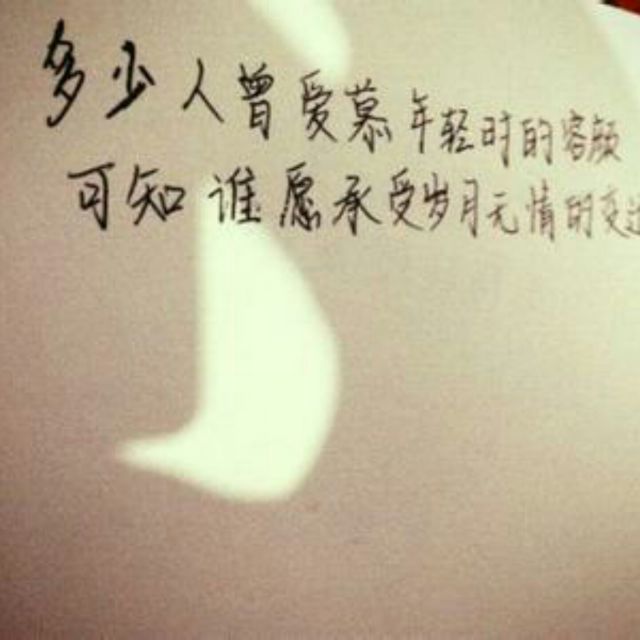 多少人曾爱慕年轻时的容颜
可知谁愿承受岁月无情的变迁